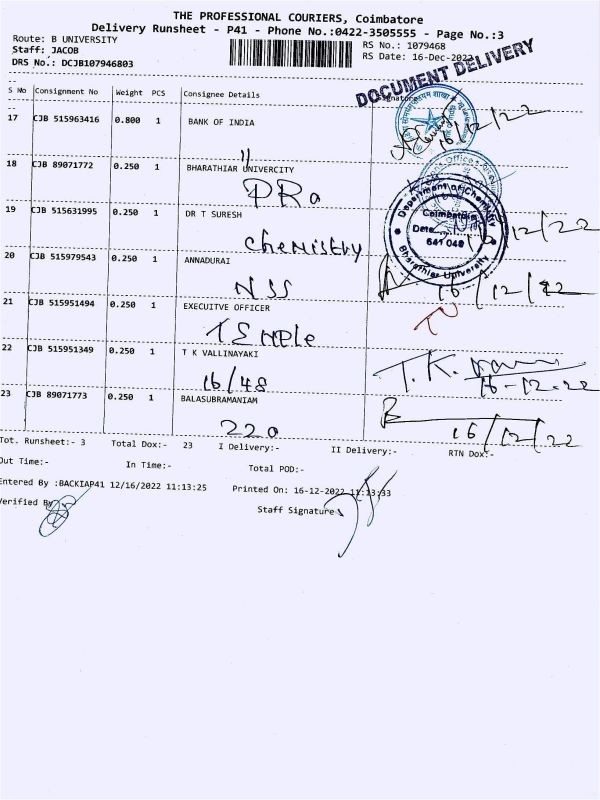 THE PROFESSIONAL COURIERS, Coimbatore
Delivery Runsheet - P41 - Phone No.:0422-3505555 - Page No.:3
Route: B UNIVERSITY
Staff: JACOB
DRS No.: DCJB107946803
RS No.: 1079468
RS Date: 16-Dec-2022
DOCUMENT DELIVERY
S No Consignment No Weight PCS Consignee Details Signature
17 CJB 515963416 0.800 1 BANK OF INDIA
16/12/22
18 CJB 89071772 0.250 1 BHARATHIAR UNIVERCITY
PRO
19 CJB 515631995 0.250 1 DR T SURESH
Chemistry
Department of Chemistry
Coimbatore
Date
641 046
Bharathiar University
16/12/22
20 CJB 515979543 0.250 1 ANNADURAI
NSS
16/12/22
21 CJB 515951494 0.250 1 EXECUITVE OFFICER
TEMPle
22 CJB 515951349 0.250 1 T K VALLINAYAKI
16/48
T.K.
16-12-22
23 CJB 89071773 0.250 1 BALASUBRAMANIAM
220
16/12/22
Tot. Runsheet:- 3 Total Dox:- 23 I Delivery:- II Delivery:- RTN Dox:-
Out Time:- In Time:- Total POD:-
Entered By :BACKIAP41 12/16/2022 11:13:25 Printed On: 16-12-2022 11:13:33
Verified By Staff Signature